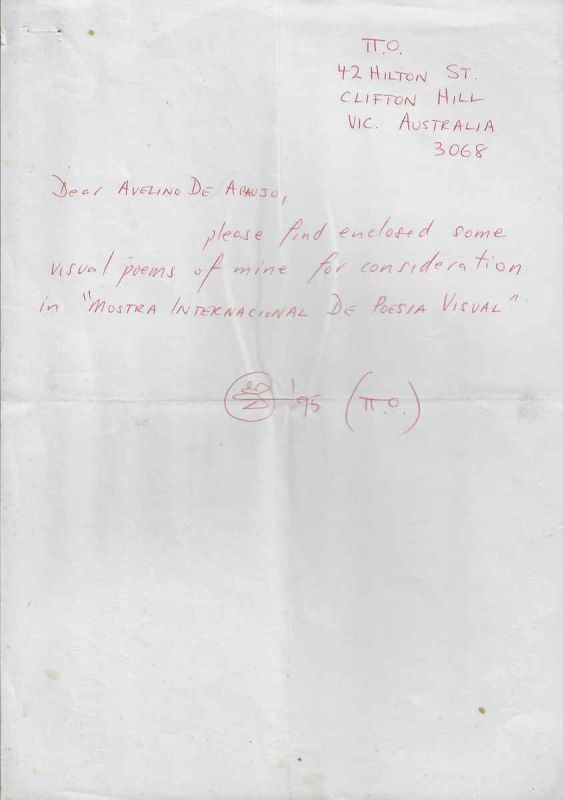 Π.O.
42 HILTON ST.
CLIFTON HILL
VIC. AUSTRALIA
3068
Dear AVELINO DE ARAUJO,
please find enclosed some
visual poems of mine for consideration
in "MOSTRA INTERNACIONAL DE POESIA VISUAL"
'95 (Π.O.)